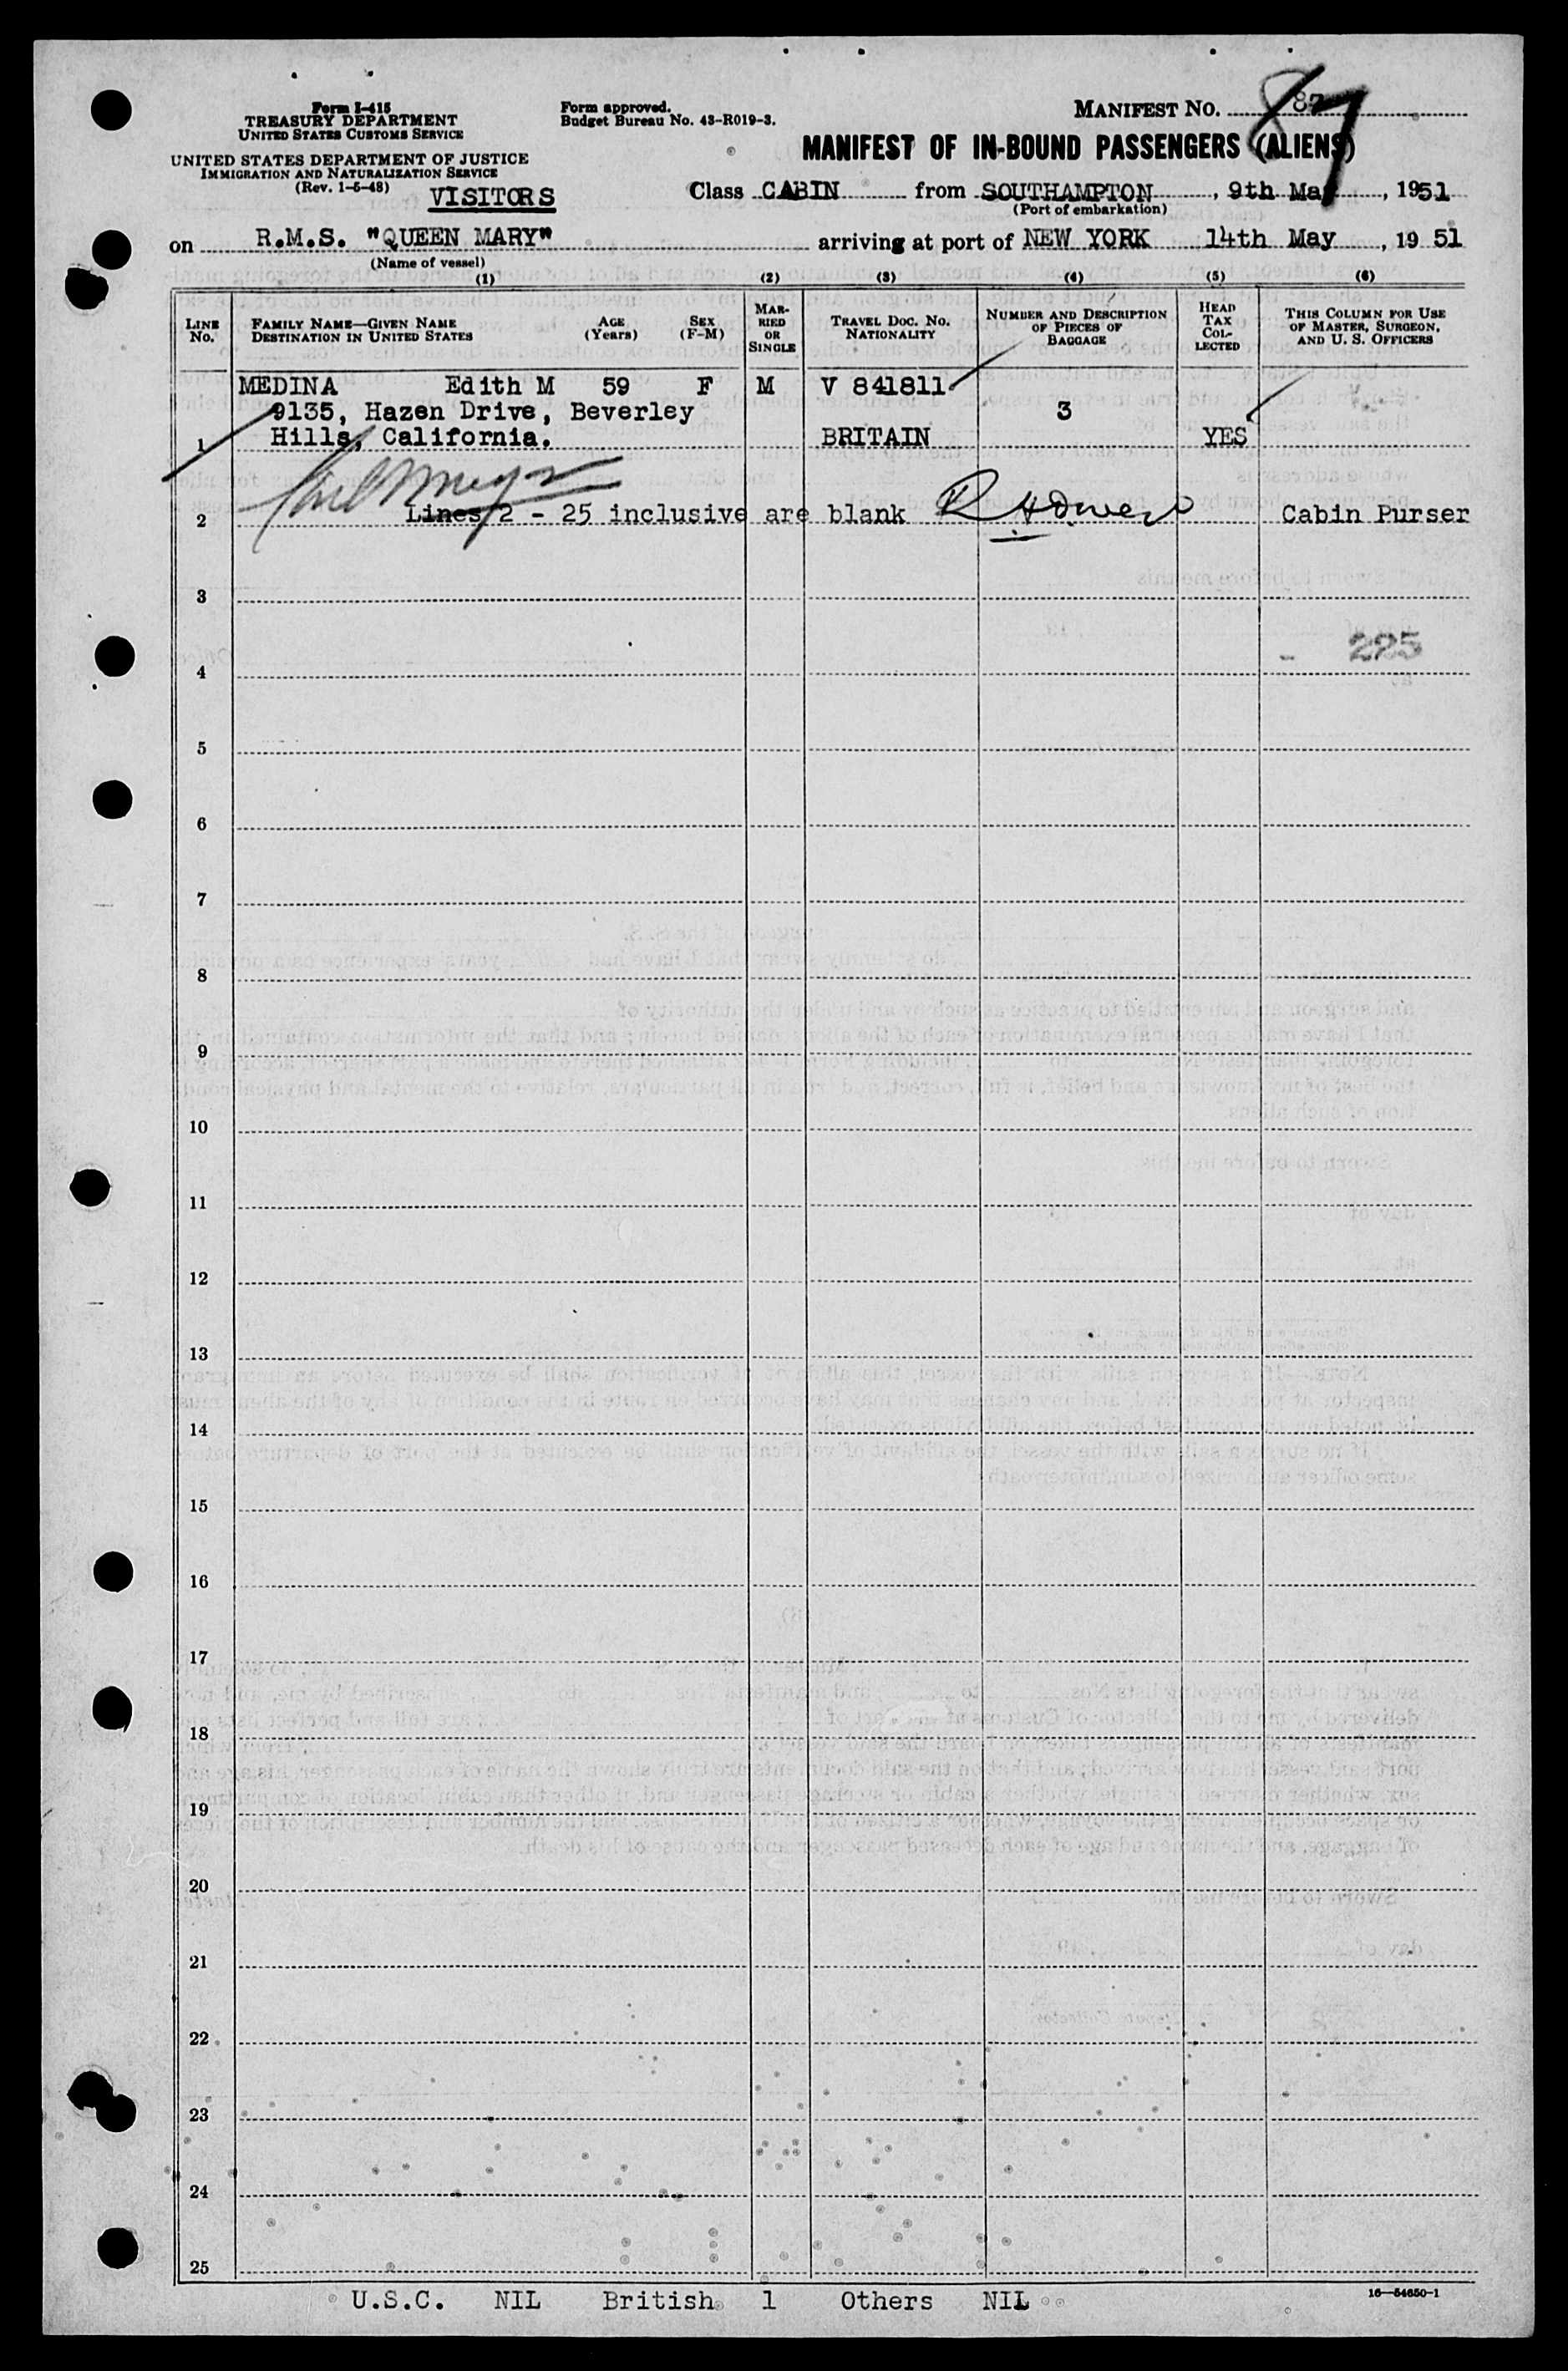 Form I-415
TREASURY DEPARTMENT
UNITED STATES CUSTOMS SERVICE
Form approved.
Budget Bureau No. 43-R019-3.
MANIFEST NO. 87
UNITED STATES DEPARTMENT OF JUSTICE
IMMIGRATION AND NATURALIZATION SERVICE
(Rev. 1-5-48)
VISITORS
MANIFEST OF IN-BOUND PASSENGERS (ALIENS)
Class CABIN from SOUTHAMPTON, 9th May, 1951
(Port of embarkation)
on R.M.S. "QUEEN MARY" arriving at port of NEW YORK 14th May, 19 51
(Name of vessel)
(1) (2) (3) (4) (5) (6)
LINE No. FAMILY NAME—GIVEN NAME DESTINATION IN UNITED STATES AGE (Years) SEX (F-M) MARRIED OR SINGLE TRAVEL DOC. NO. NATIONALITY NUMBER AND DESCRIPTION OF PIECES OF BAGGAGE HEAD TAX COLLECTED THIS COLUMN FOR USE OF MASTER, SURGEON, AND U. S. OFFICERS
MEDINA Edith M 59 F M V 841811
9135, Hazen Drive, Beverley 3
1 Hills, California. BRITAIN YES
2 Lines 2 - 25 inclusive are blank Cabin Purser
3
225
4
5
6
7
8
9
10
11
12
13
14
15
16
17
18
19
20
21
22
23
24
25
U.S.C. NIL British 1 Others NIL
16—54650-1